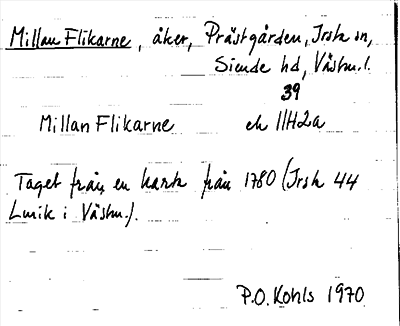 Millan Flikarne, åker, Prästgården, Irsta sn,
Siende hd, Västm. l.
39
Millan Flikarne ek 11H2a
Taget från en karta från 1780 (Irsta 44
Lmk i Västm.).
P.O. Kohls 1970